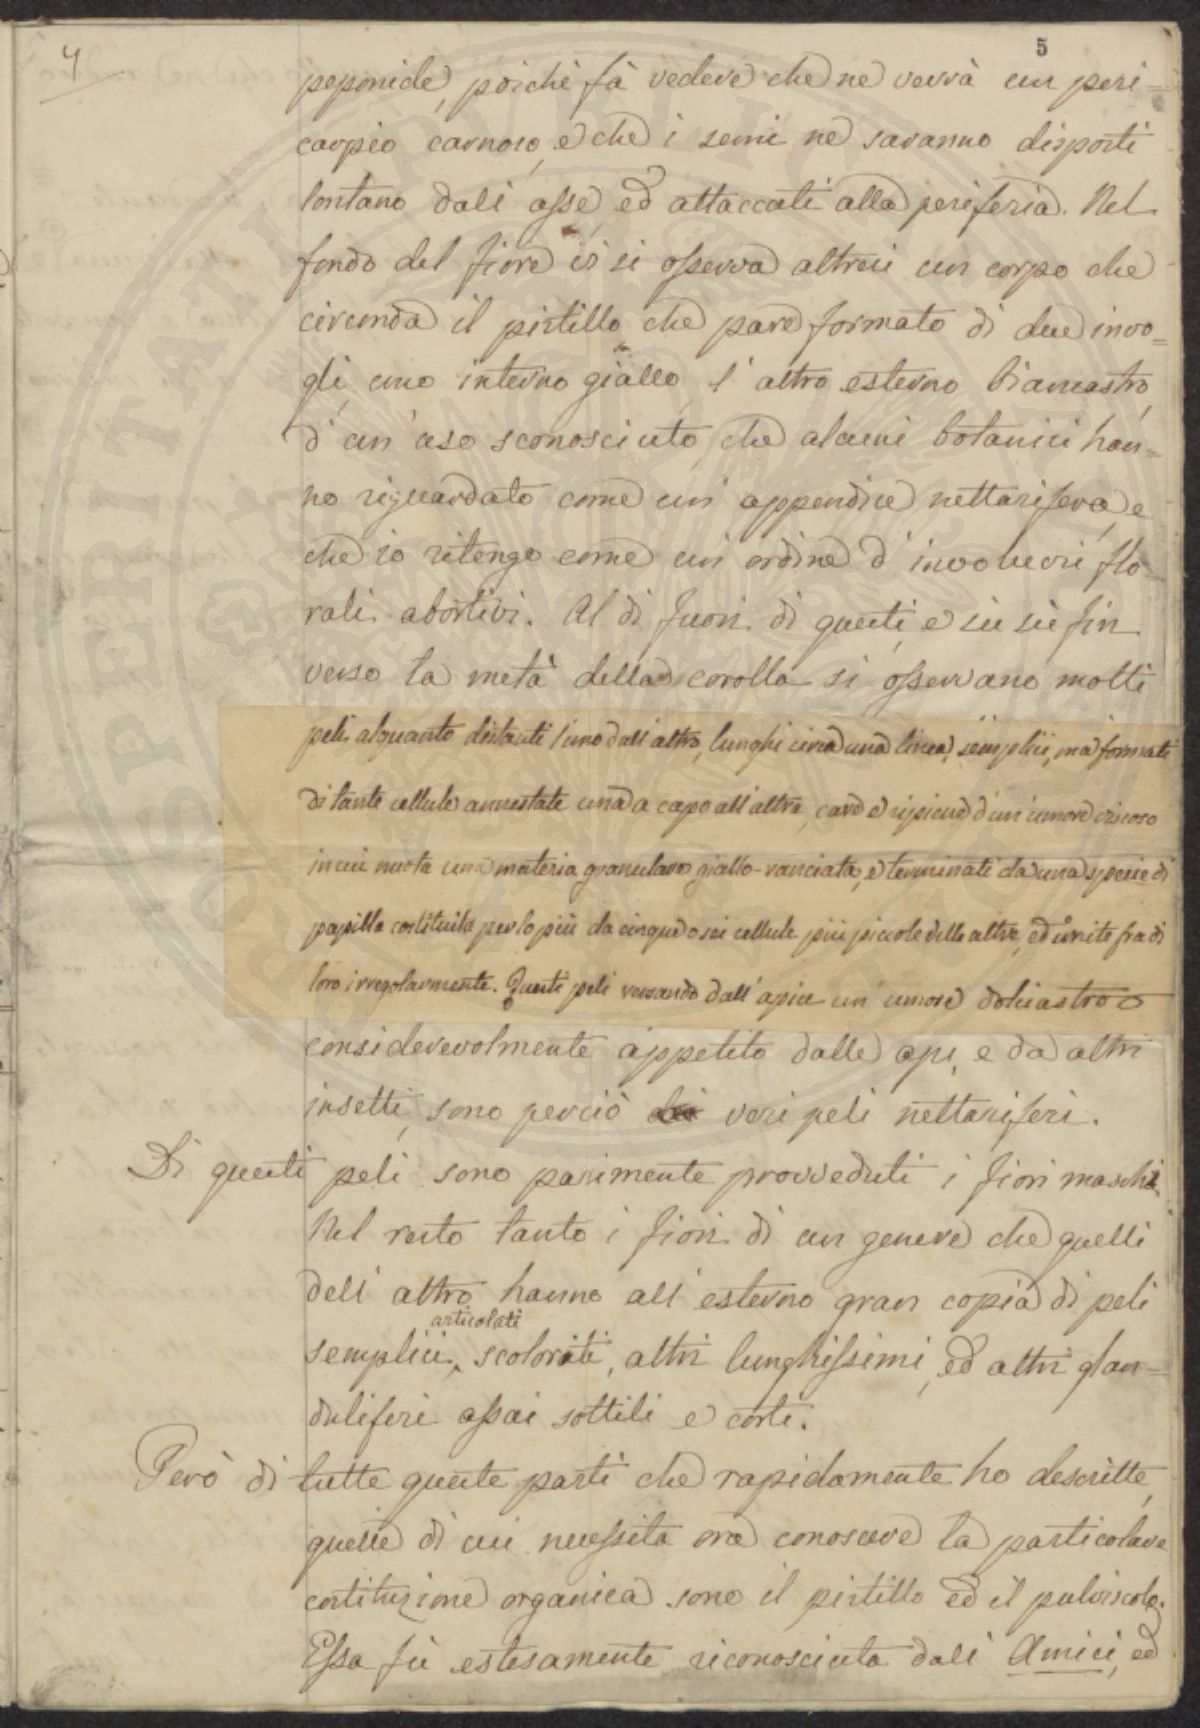 4
5
peponide, poichè fà vedere che ne verrà un peri-
carpio carnoso, e che i semi ne saranno disposti
lontano dall'asse, ed attaccati alla periferia. Nel
fondo del fiore vi si osserva altresi un corpo che
circonda il pistillo che pare formato di due invo=
gli, uno interno giallo, l'altro esterno biancastro,
d'un'uso sconosciuto, che alcuni botanici han=
no riguardato come un'appendice nettarifera, e
che io ritengo come un'ordine d'involucri flo-
rali abortivi. Al di fuori di questi, e su su fin
verso la metà della corolla si osservano molti
peli alquanto distanti l'uno dall'altro, lunghi circa una linea, semplici, ma formati
di tante cellule annestate una a capo all'altra, cave e ripiene d'un'umore vizcoso
in cui nuota una materia granulare giallo-ranciata, e terminati da una specie di
papilla costituita per lo più da cinque o sei cellule più piccole delle altre, ed unite fra di
loro irregolarmente. Questi peli versando dall'apice un'umore dolciastro
considerevolmente appetito dalle api, e da altri
insetti, sono perciò veri peli nettariferi.
Di questi peli sono parimente provveduti i fiori maschi.
Nel resto tanto i fiori di un genere che quelli
dell'altro hanno all'esterno gran copia di peli
articolati
semplici, scolorati, altri lunghissimi, ed altri glan-
duliferi assai sottili e corti.
Però di tutte queste parti che rapidamente ho descritte,
quelle di cui necessita ora conoscere la particolare
costituzione organica sono il pistillo ed il pulviscolo.
Essa fù estesamente riconosciuta dall'Amici, ed